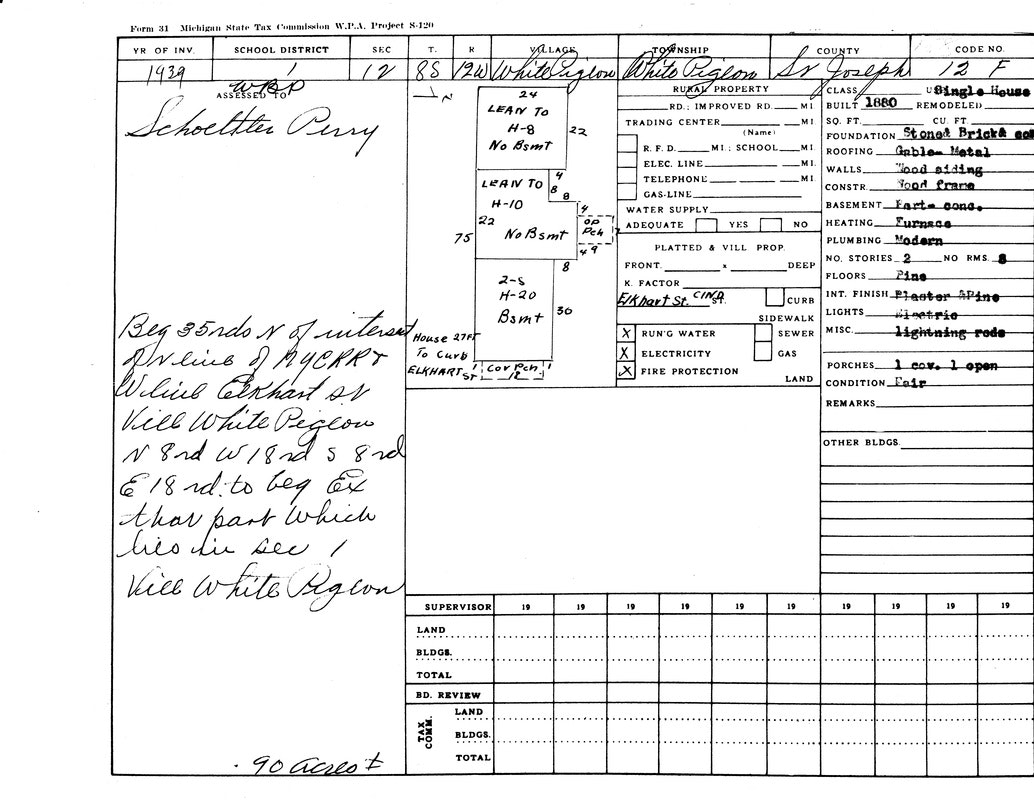 Form 31 Michigan State Tax Commission W.P.A. Project S-120
YR OF INV. SCHOOL DISTRICT SEC T. R VILLAGE TOWNSHIP COUNTY CODE NO.
1939 1 12 8S 12W White Pigeon White Pigeon St Joseph 12 F
WBP
ASSESSED TO
Schoettler Perry
Beg 35rds N of intersect
of N line of NYCRR &
W line Elkhart St
Vill White Pigeon
N 8rd W 18rd S 8rd
E 18 rd. to beg Ex
that part which
lies in sec 1
Vill White Pigeon
.90 Acres ±
N
24
LEAN TO
H-8
No Bsmt
22
4
8
8
LEAN TO
H-10
22
No Bsmt
4
OP
Pch
4 9
75
8
2-S
H-20
Bsmt
30
House 27FT
To Curb
ELKHART ST
Cov Pch
12
RURAL PROPERTY
RD.; IMPROVED RD. MI.
TRADING CENTER MI.
(Name)
R. F. D. MI.; SCHOOL MI.
ELEC. LINE MI.
TELEPHONE MI.
GAS-LINE
WATER SUPPLY
ADEQUATE YES NO
PLATTED & VILL PROP.
FRONT. x DEEP
K. FACTOR
Elkhart St. CIND ST. CURB
SIDEWALK
X RUN'G WATER SEWER
X ELECTRICITY GAS
X FIRE PROTECTION
LAND
CLASS Single House
BUILT 1880 REMODELED
SQ. FT. CU. FT.
FOUNDATION Stone& Brick&
ROOFING Gable- Metal
WALLS Wood siding
CONSTR. Wood frame
BASEMENT Part- conc.
HEATING Furnace
PLUMBING Modern
NO. STORIES 2 NO RMS. 8
FLOORS Pine
INT. FINISH Plaster &Pine
LIGHTS Electric
MISC. lightning rods
PORCHES 1 cov. 1 open
CONDITION Fair
REMARKS
OTHER BLDGS.
SUPERVISOR 19 19 19 19 19 19 19 19 19 19
LAND
BLDGS.
TOTAL
BD. REVIEW
TAX COMM.
LAND
BLDGS.
TOTAL